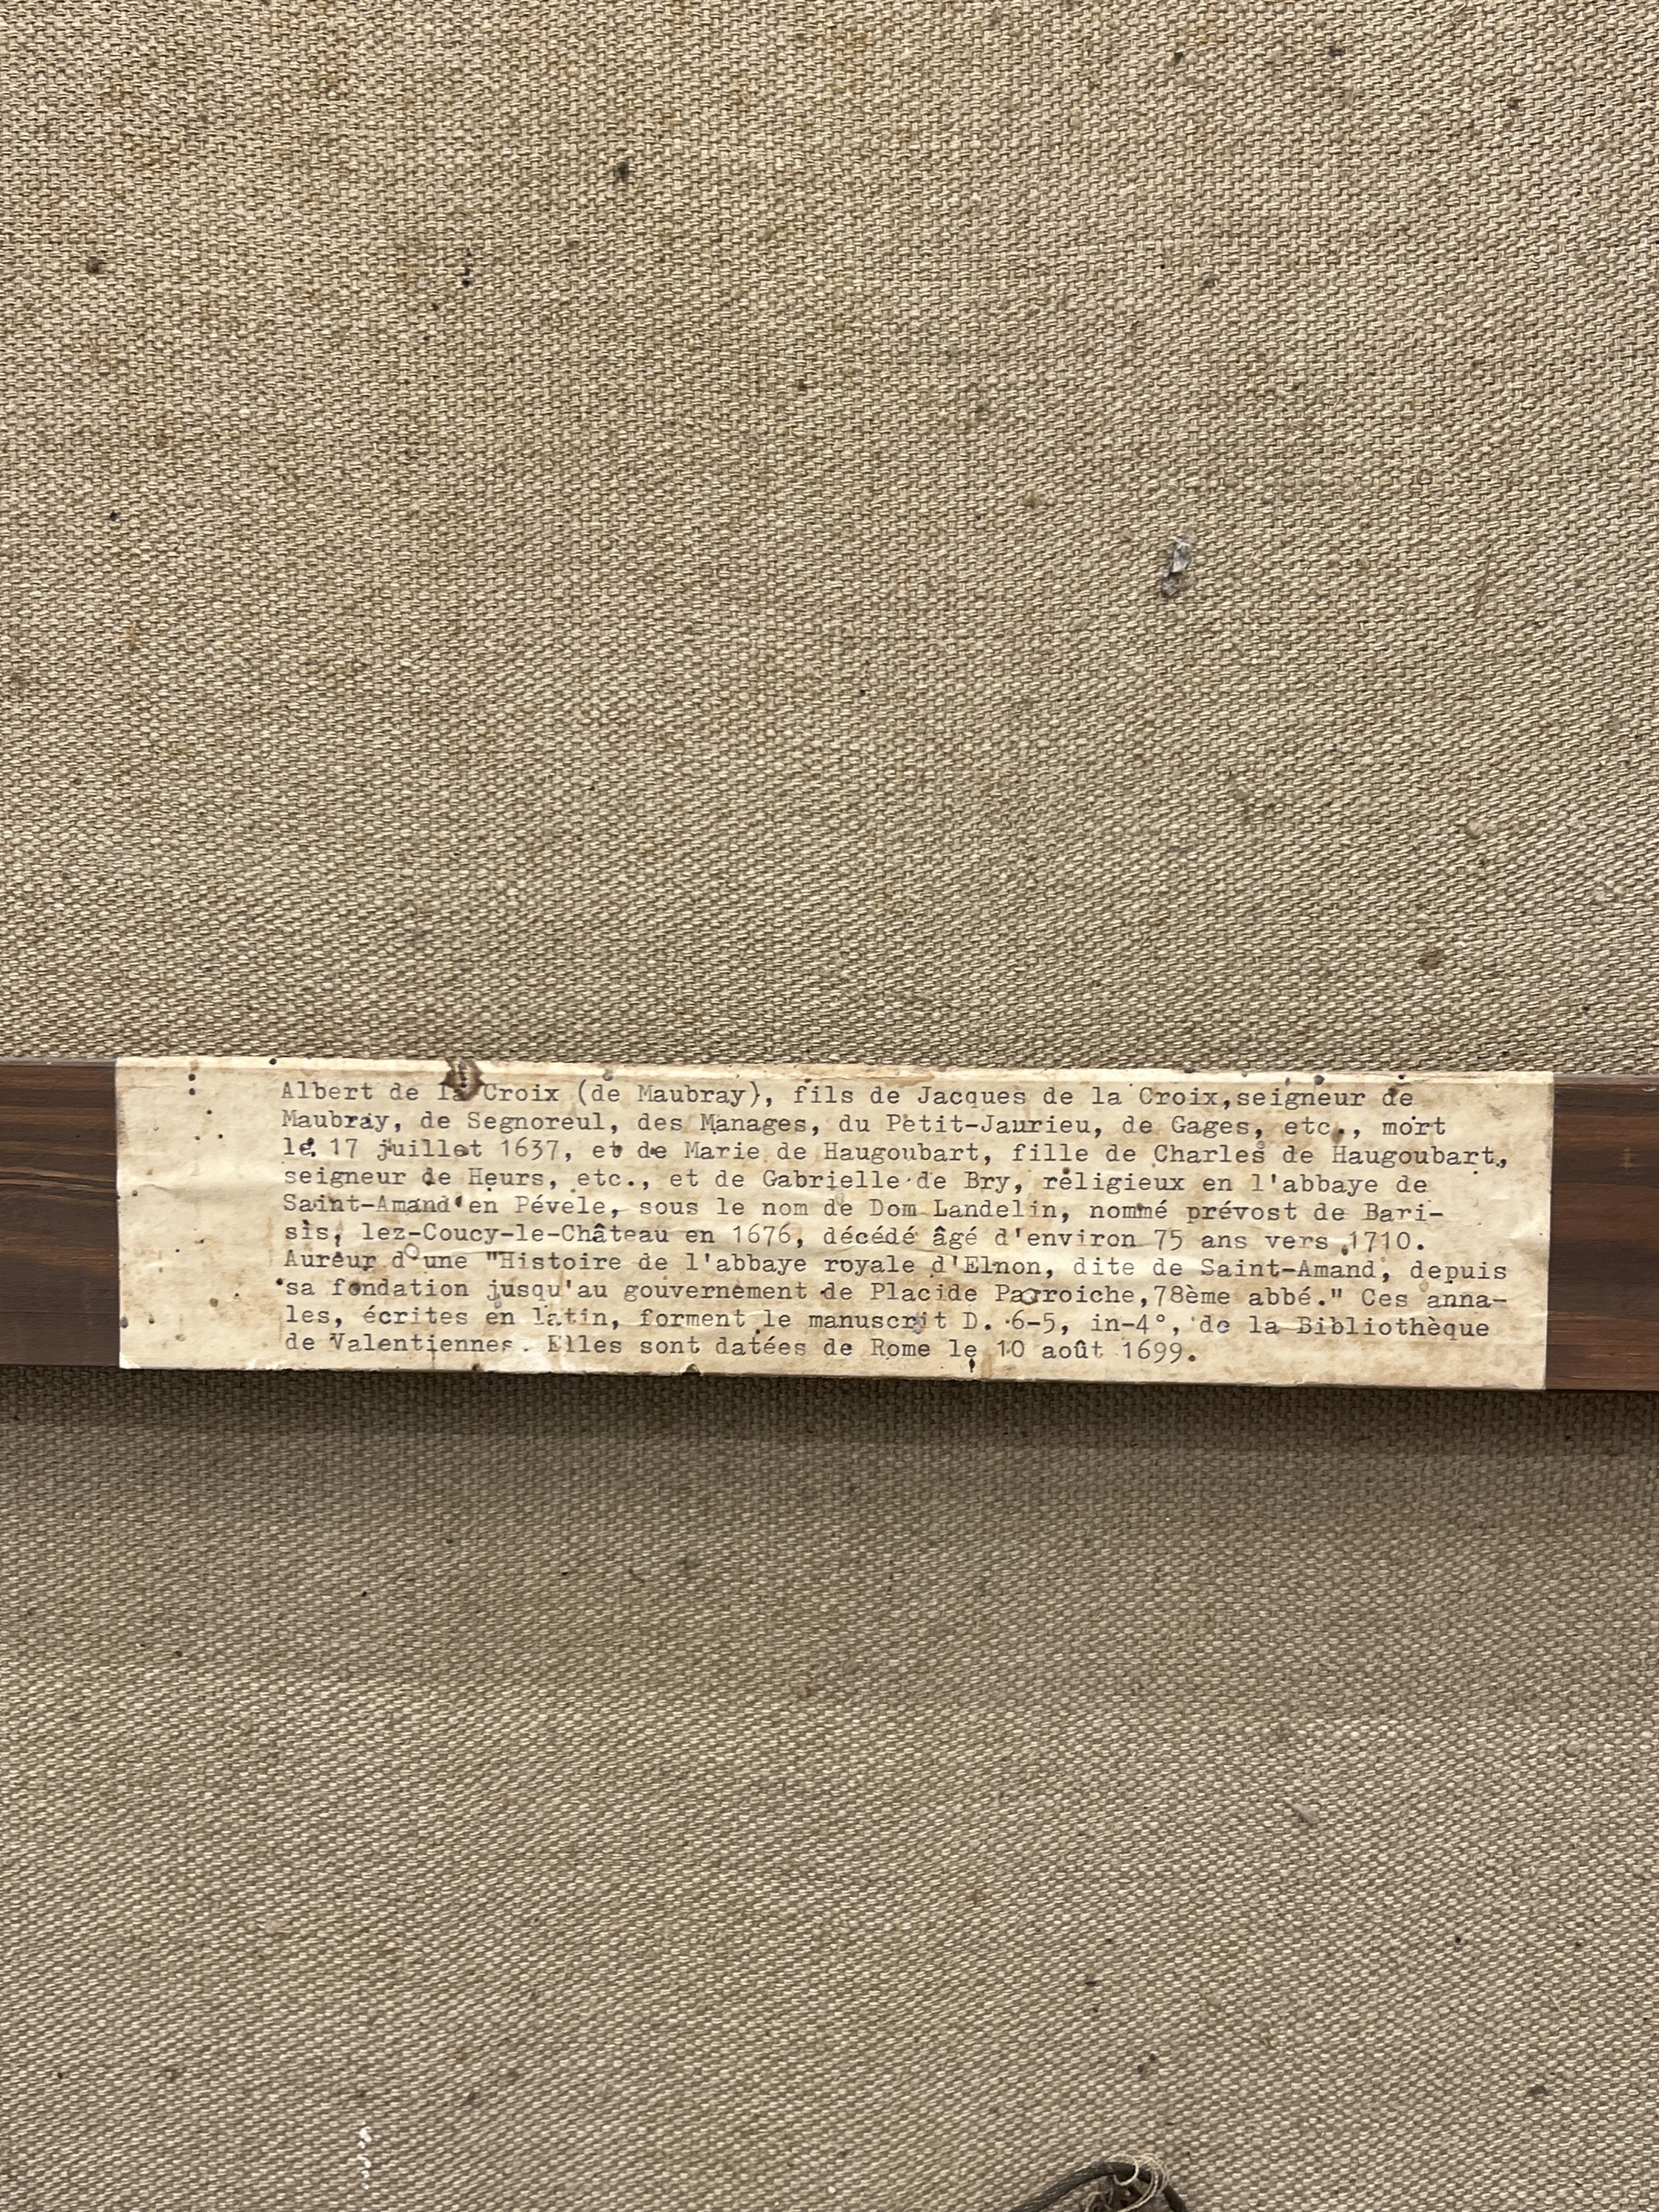 Albert de la Croix (de Maubray), fils de Jacques de la Croix,seigneur de
Maubray, de Segnoreul, des Manages, du Petit-Jaurieu, de Gages, etc., mort
le 17 juillet 1637, et de Marie de Haugoubart, fille de Charles de Haugoubart,
seigneur de Heurs, etc., et de Gabrielle de Bry, réligieux en l'abbaye de
Saint-Amand en Pévèle, sous le nom de Dom Landelin, nommé prévost de Bari-
sis, lez-Coucy-le-Château en 1676, décédé âgé d'environ 75 ans vers 1710.
Aureur d'une "Histoire de l'abbaye royale d'Elnon, dite de Saint-Amand, depuis
sa fondation jusqu'au gouvernement de Placide Parroiche,78ème abbé." Ces anna-
les, écrites en latin, forment le manuscrit D. 6-5, in-4°, de la Bibliothèque
de Valentiennes. Elles sont datées de Rome le 10 août 1699.